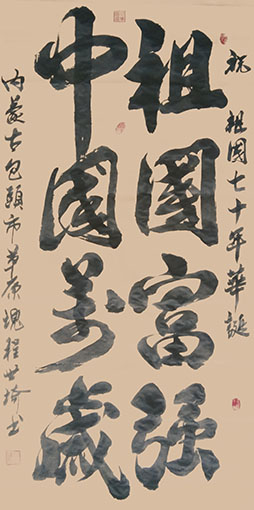 祝祖國七十年華誕
祖國富强
中國萬歲
内蒙古包頭市草原瑰程世琦书